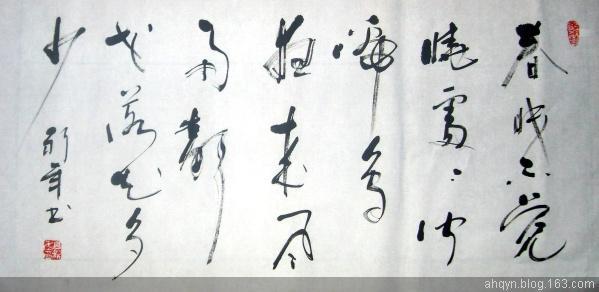 春眠不觉
晓處々闻
啼鸟
夜来风
雨聲
花落知多
少
书
ahqyn.blog.163.com